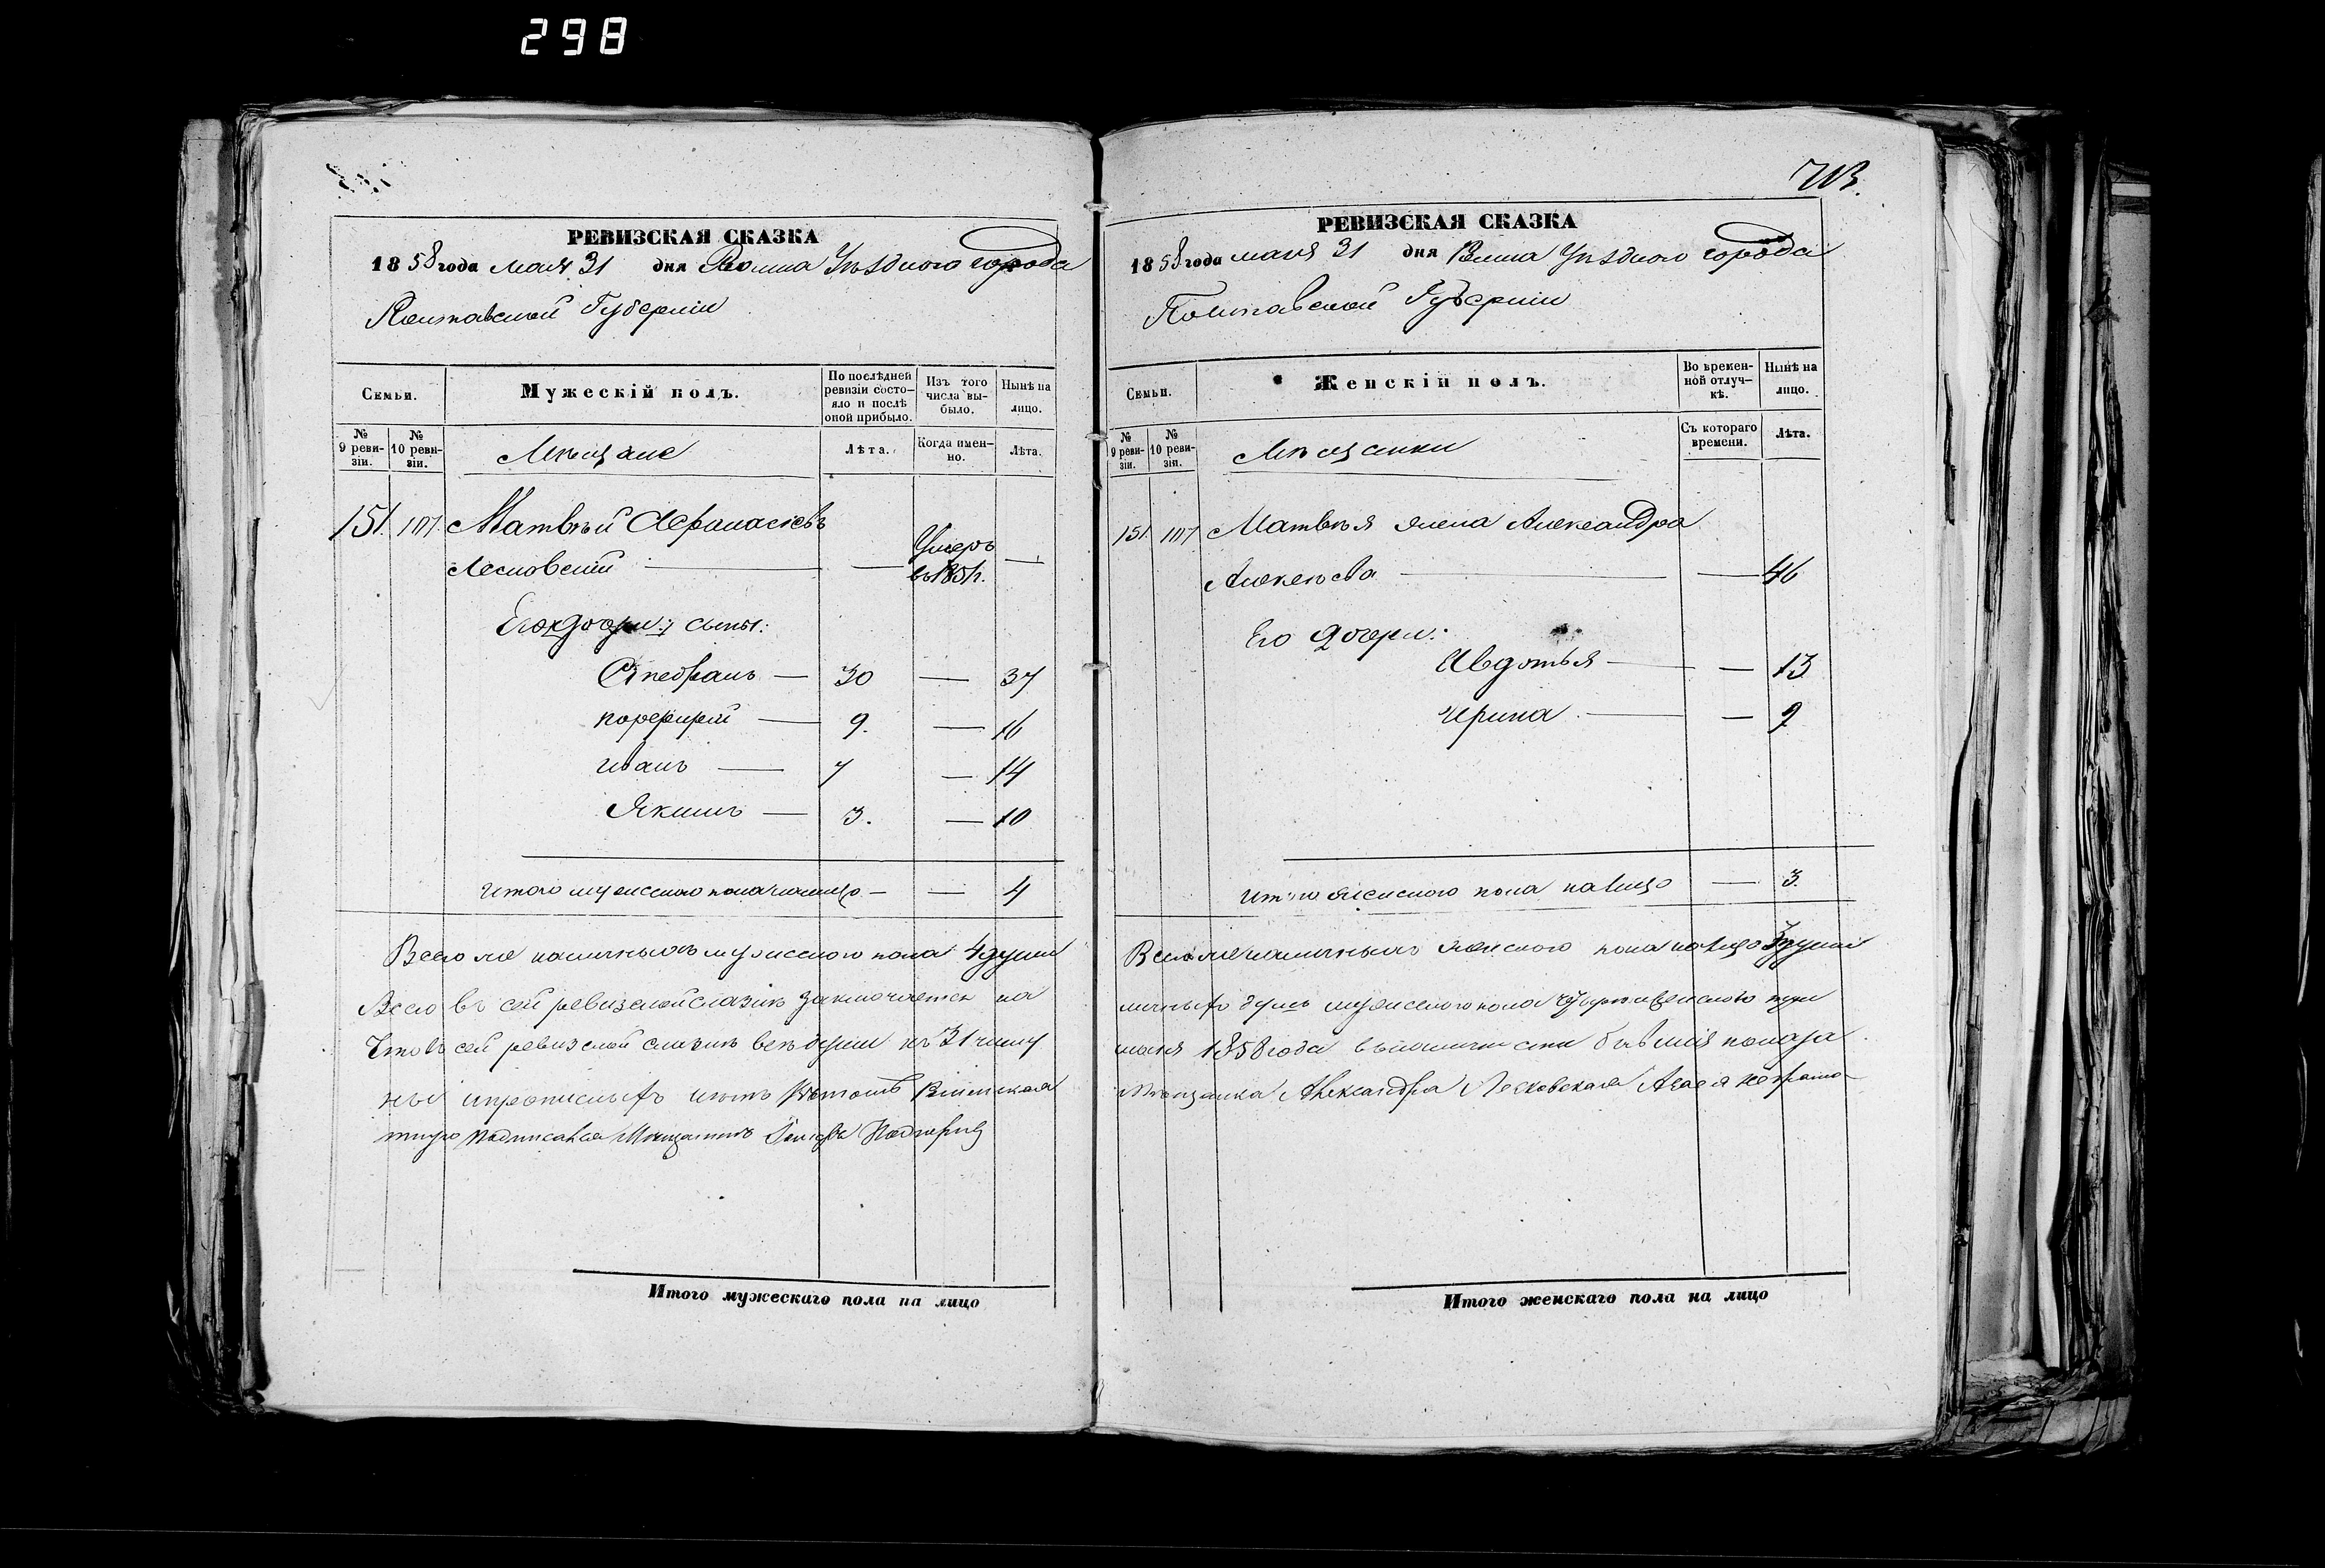 298
РЕВИЗСКАЯ СКАЗКА
1858 года мая 31 дня Уѣзднаго города
Полтавской Губернiи
Семьи.
Мужескiй полъ.
По послѣдней ревизiи состояло и послѣ оной прибыло.
Изъ того числа выбыло.
Нынѣ на лицо.
№ 9 ревизiи.
№ 10 ревизiи.
Мѣщане
Лѣта.
Когда именно.
Лѣта.
151. 107. Матвѣй Афанасiевъ
Лесковскiй — — Умеръ въ 1851 г. —
Его сыны:
— 30 — 37
Порфирiй — 9. — 16
Иванъ — 7 — 14
Якимъ — 3. — 10
Итого мужескаго пола налицо — — 4
Всего же наличныхъ мужескаго пола 4 души
Всего въ сей ревизской сказкѣ заключается на
Что въ сей ревизской сказкѣ всѣ души къ 31 числу
ные и прописныхъ нѣтъ въ томъ
подписался Мѣщанинъ
Итого мужескаго пола на лицо
РЕВИЗСКАЯ СКАЗКА
1858 года мая 31 дня Уѣзднаго города
Полтавской Губернiи
Семьи.
Женскiй полъ.
Во временной отлучкѣ.
Нынѣ на лицо.
№ 9 ревизiи.
№ 10 ревизiи.
Мѣщанки
Съ котораго времени.
Лѣта.
151. 107 Матвѣя жена Александра
Алексѣева — — 46
Его дочери:
Авдотья — — 13
Ирина — — 9
Итого женскаго пола налицо — 3.
Всего же наличныхъ женскаго пола налицо 3 души
личныхъ душъ мужескаго пола женскаго три
мая 1858 года въ наличности бывшiя показа
Мѣщанка Александра Лесковская неграмо-
Итого женскаго пола на лицо